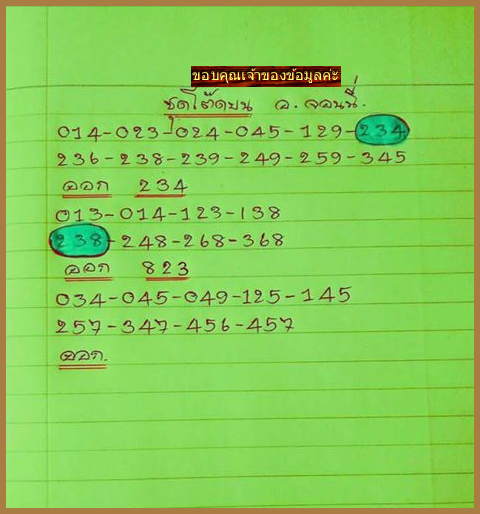 ขอบคุณเจ้าของข้อมูลค่ะ
ชุดโต๊ดบน อ. จอนนี่.
014-023-024-045-129-234
236-238-239-249-259-345
ออก 234
013-014-123-138
238-248-268-368
ออก 823
034-045-049-125-145
257-347-456-457
ออก.